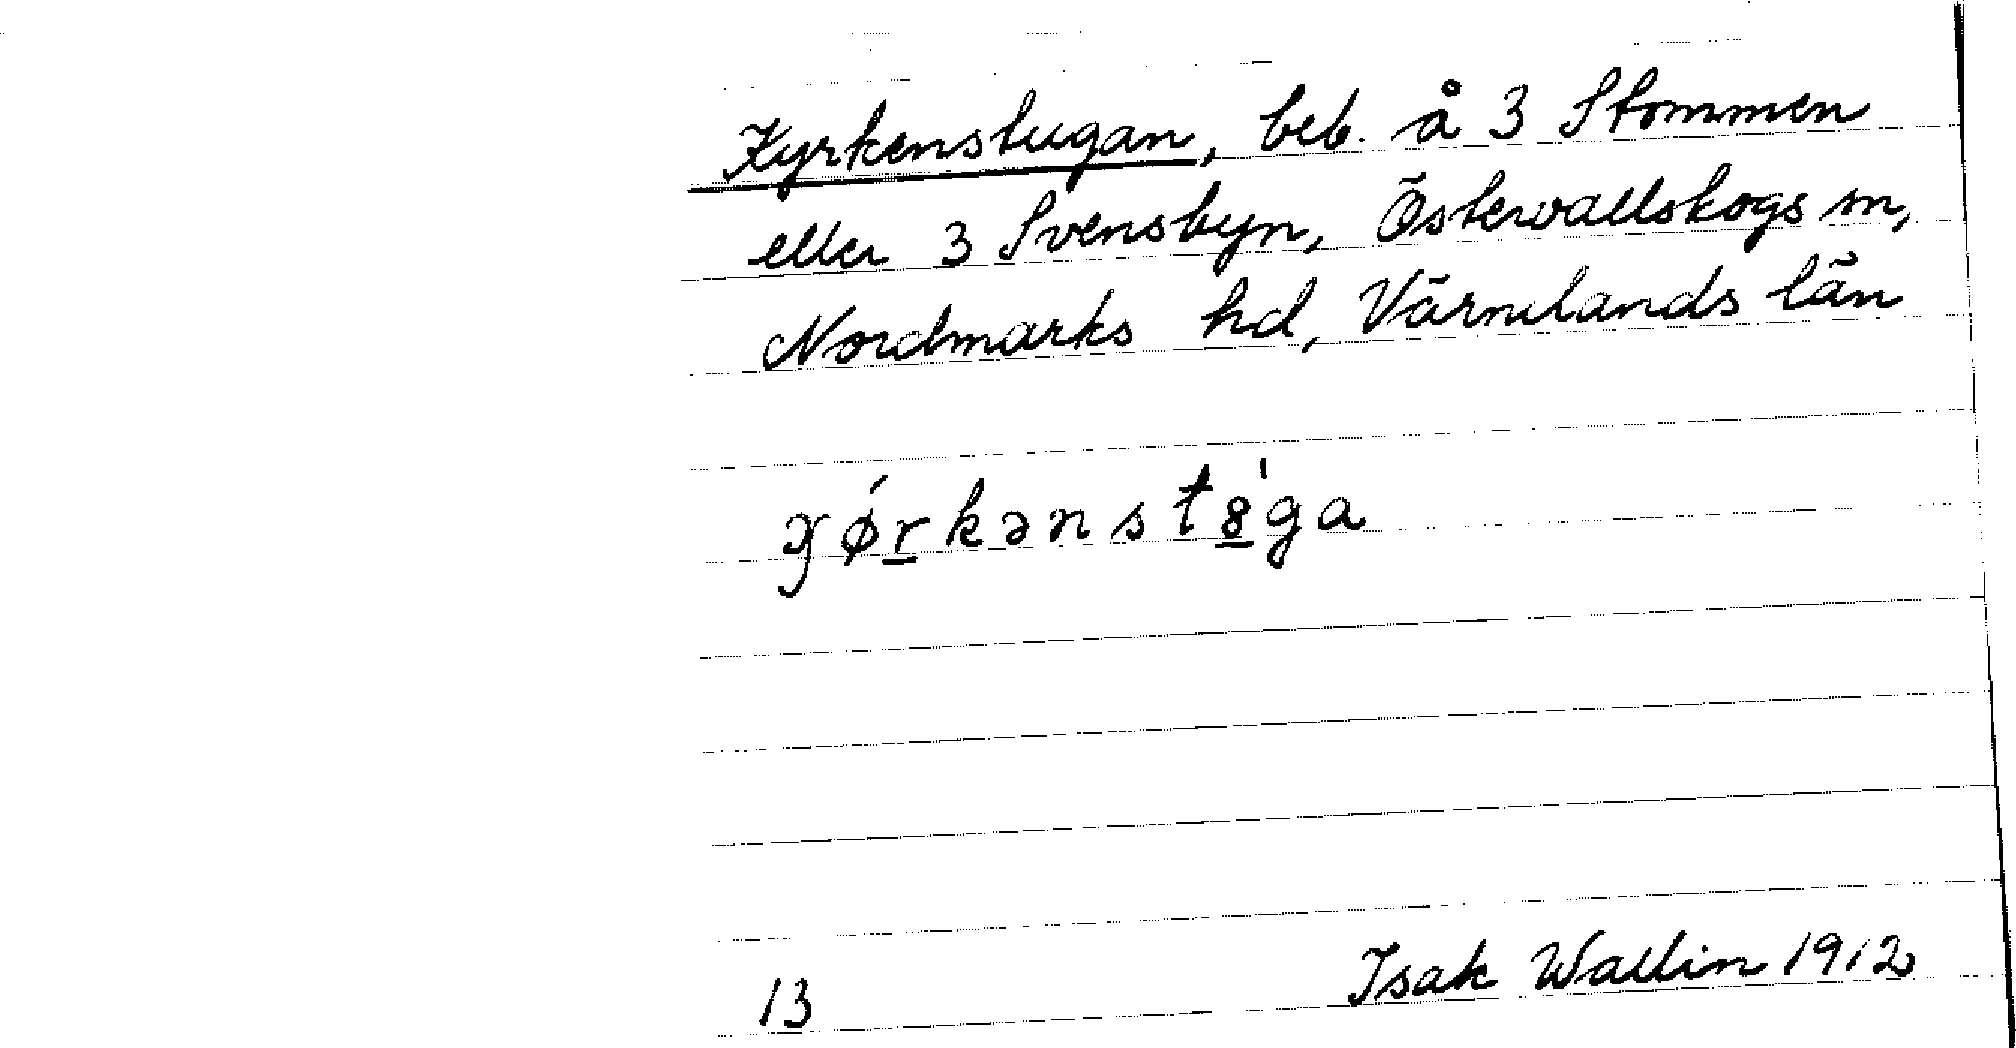 Kyrkenstugan, beb. å 3 Stommen
eller 3 Svensbyn, Östervallskogs sn,
Nordmarks hd, Värmlands län
13
Isak Wallin 1912